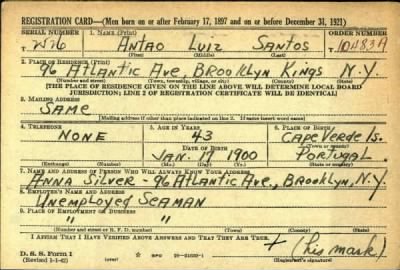 REGISTRATION CARD—(Men born on or after February 17, 1897 and on or before December 31, 1921)
SERIAL NUMBER 1. NAME (Print) ORDER NUMBER
W26 ANTAO LUIZ SANTOS 10483A
(First) (Middle) (Last)
2. PLACE OF RESIDENCE (Print)
96 Atlantic Ave, Brooklyn Kings N.Y.
(Number and street) (Town, township, village, or city) (County) (State)
[THE PLACE OF RESIDENCE GIVEN ON THE LINE ABOVE WILL DETERMINE LOCAL BOARD
JURISDICTION; LINE 2 OF REGISTRATION CERTIFICATE WILL BE IDENTICAL]
3. MAILING ADDRESS
SAME
[Mailing address if other than place indicated on line 2. If same insert word same]
4. TELEPHONE 5. AGE IN YEARS 6. PLACE OF BIRTH
NONE 43 CAPE VERDE Is.
DATE OF BIRTH (Town or county)
JAN. 1900 PORTUGAL
(Exchange) (Number) (Mo.) (Day) (Yr.) (State or country)
7. NAME AND ADDRESS OF PERSON WHO WILL ALWAYS KNOW YOUR ADDRESS
ANNA SILVER - 96 ATLANTIC AVE., BROOKLYN, N.Y.
8. EMPLOYER'S NAME AND ADDRESS
UNEMPLOYED SEAMAN
9. PLACE OF EMPLOYMENT OR BUSINESS
" "
(Number and street or R. F. D. number) (Town) (County) (State)
I AFFIRM THAT I HAVE VERIFIED ABOVE ANSWERS AND THAT THEY ARE TRUE.
D. S. S. Form 1
(Revised 1-1-42) (over) GPO + (his mark)